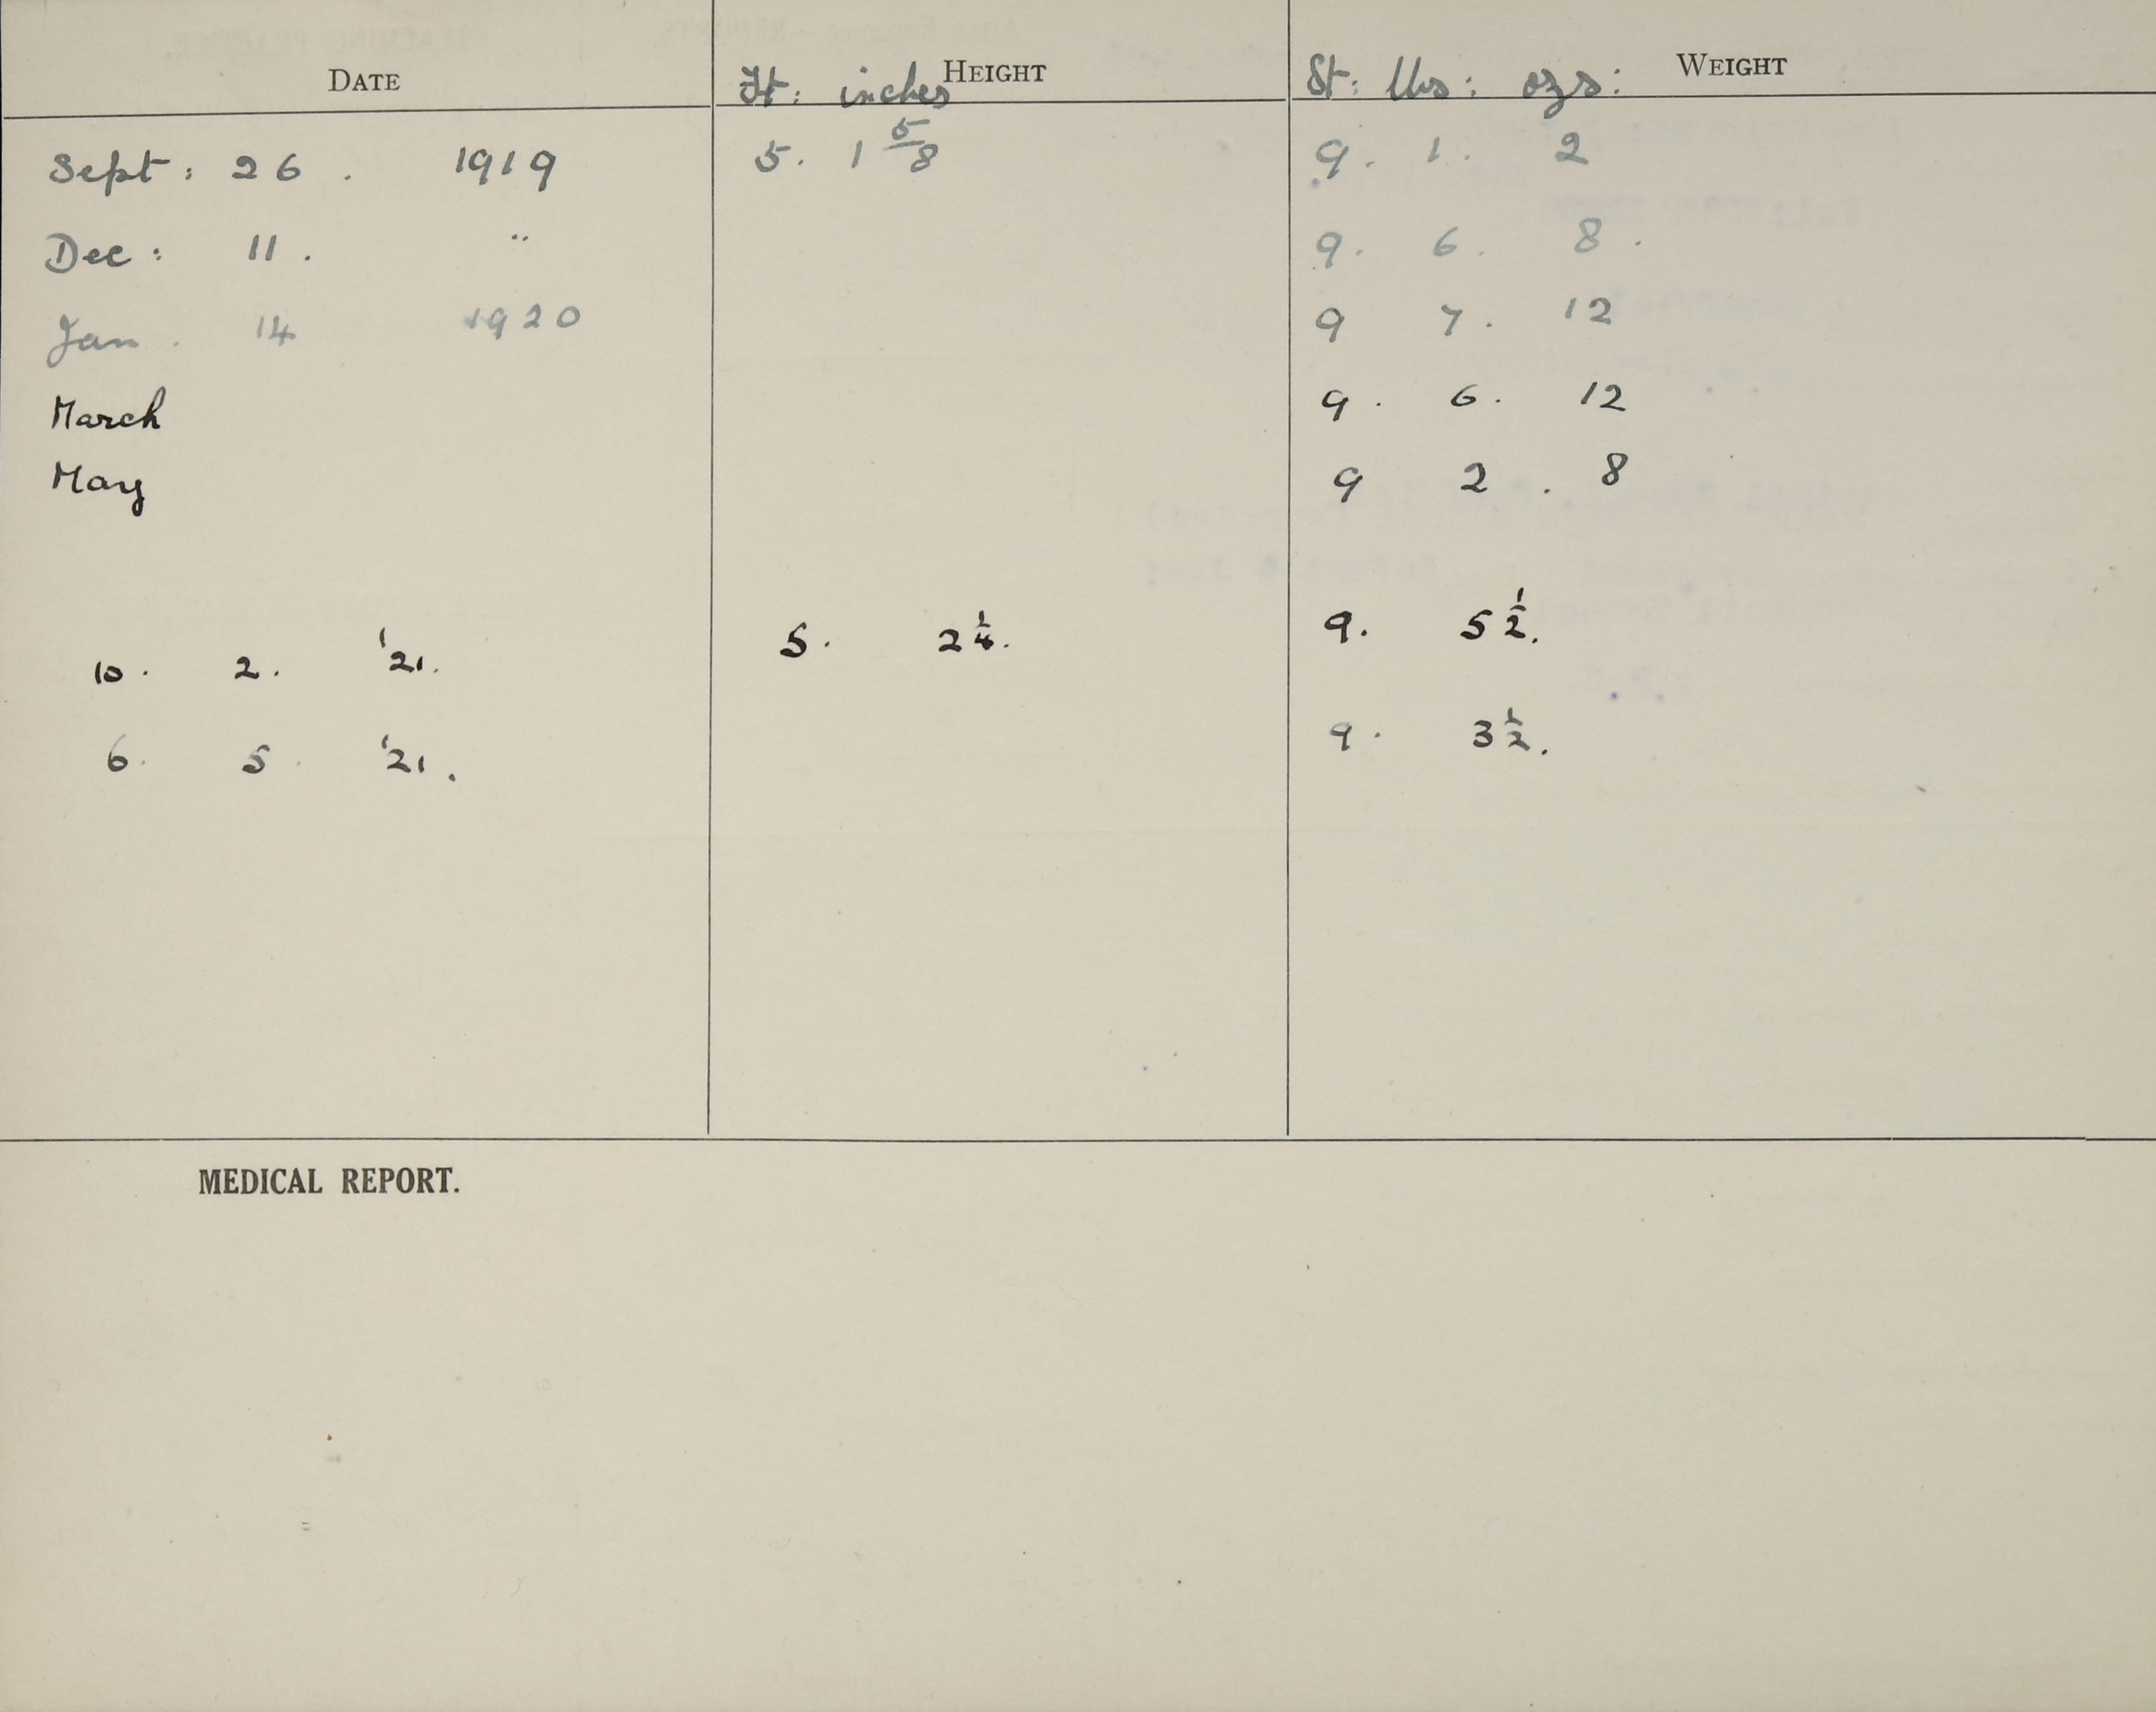 DATE Ft: inches HEIGHT St: lbs: ozs: WEIGHT
Sept: 26. 1919 5. 1 5/8 9. 1. 2
Dec: 11. " 9. 6. 8.
Jan. 14 1920 9 7. 12
March 9. 6. 12
May 9 2. 8
10. 2. '21. 5. 2 1/4. 9. 5 1/2.
6. 5. '21. 9. 3 1/2.
MEDICAL REPORT.